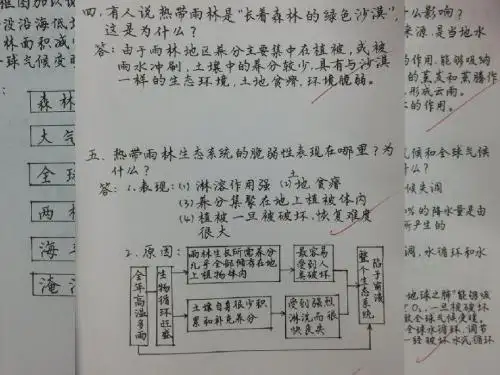 四.有人说热带雨林是"长着森林的绿色沙漠",
这是为什么?
答:由于雨林地区养分主要集中在植被,或被
雨水冲刷,土壤中的养分较少,具有与沙漠
一样的生态环境,土地贫瘠,环境脆弱。
五.热带雨林生态系统的脆弱性表现在哪里?为
什么?
答:1.表现:(1)淋溶作用强 (2)土地贫瘠
(3)养分集聚在地上植被体内
(4)植被一旦被破坏,恢复难度
很大
2.原因:
全年高温多雨
生物循环旺盛
雨林生长所需养分
几乎全部储存在地
上植物体内
最容易
受到人
类破坏
土壤自身很少积
累和补充养分
受到强烈
淋洗而很
快丧失
整个生态系统
陷于崩溃
林面积减
球气候变
森林
大气
全球
两
海平
淹没
么影响?
来源,是当地水
的作用,能够吸纳
的蒸发和蒸腾作
形成云雨。
的作用。
气候和全球气候
什么?
候失调
的降水量是由
所产生的
调,水循环和水
地球之肺"能够吸
一旦被破坏
全球气候变暖。
全球水循环,调节
一经破坏水汽循环